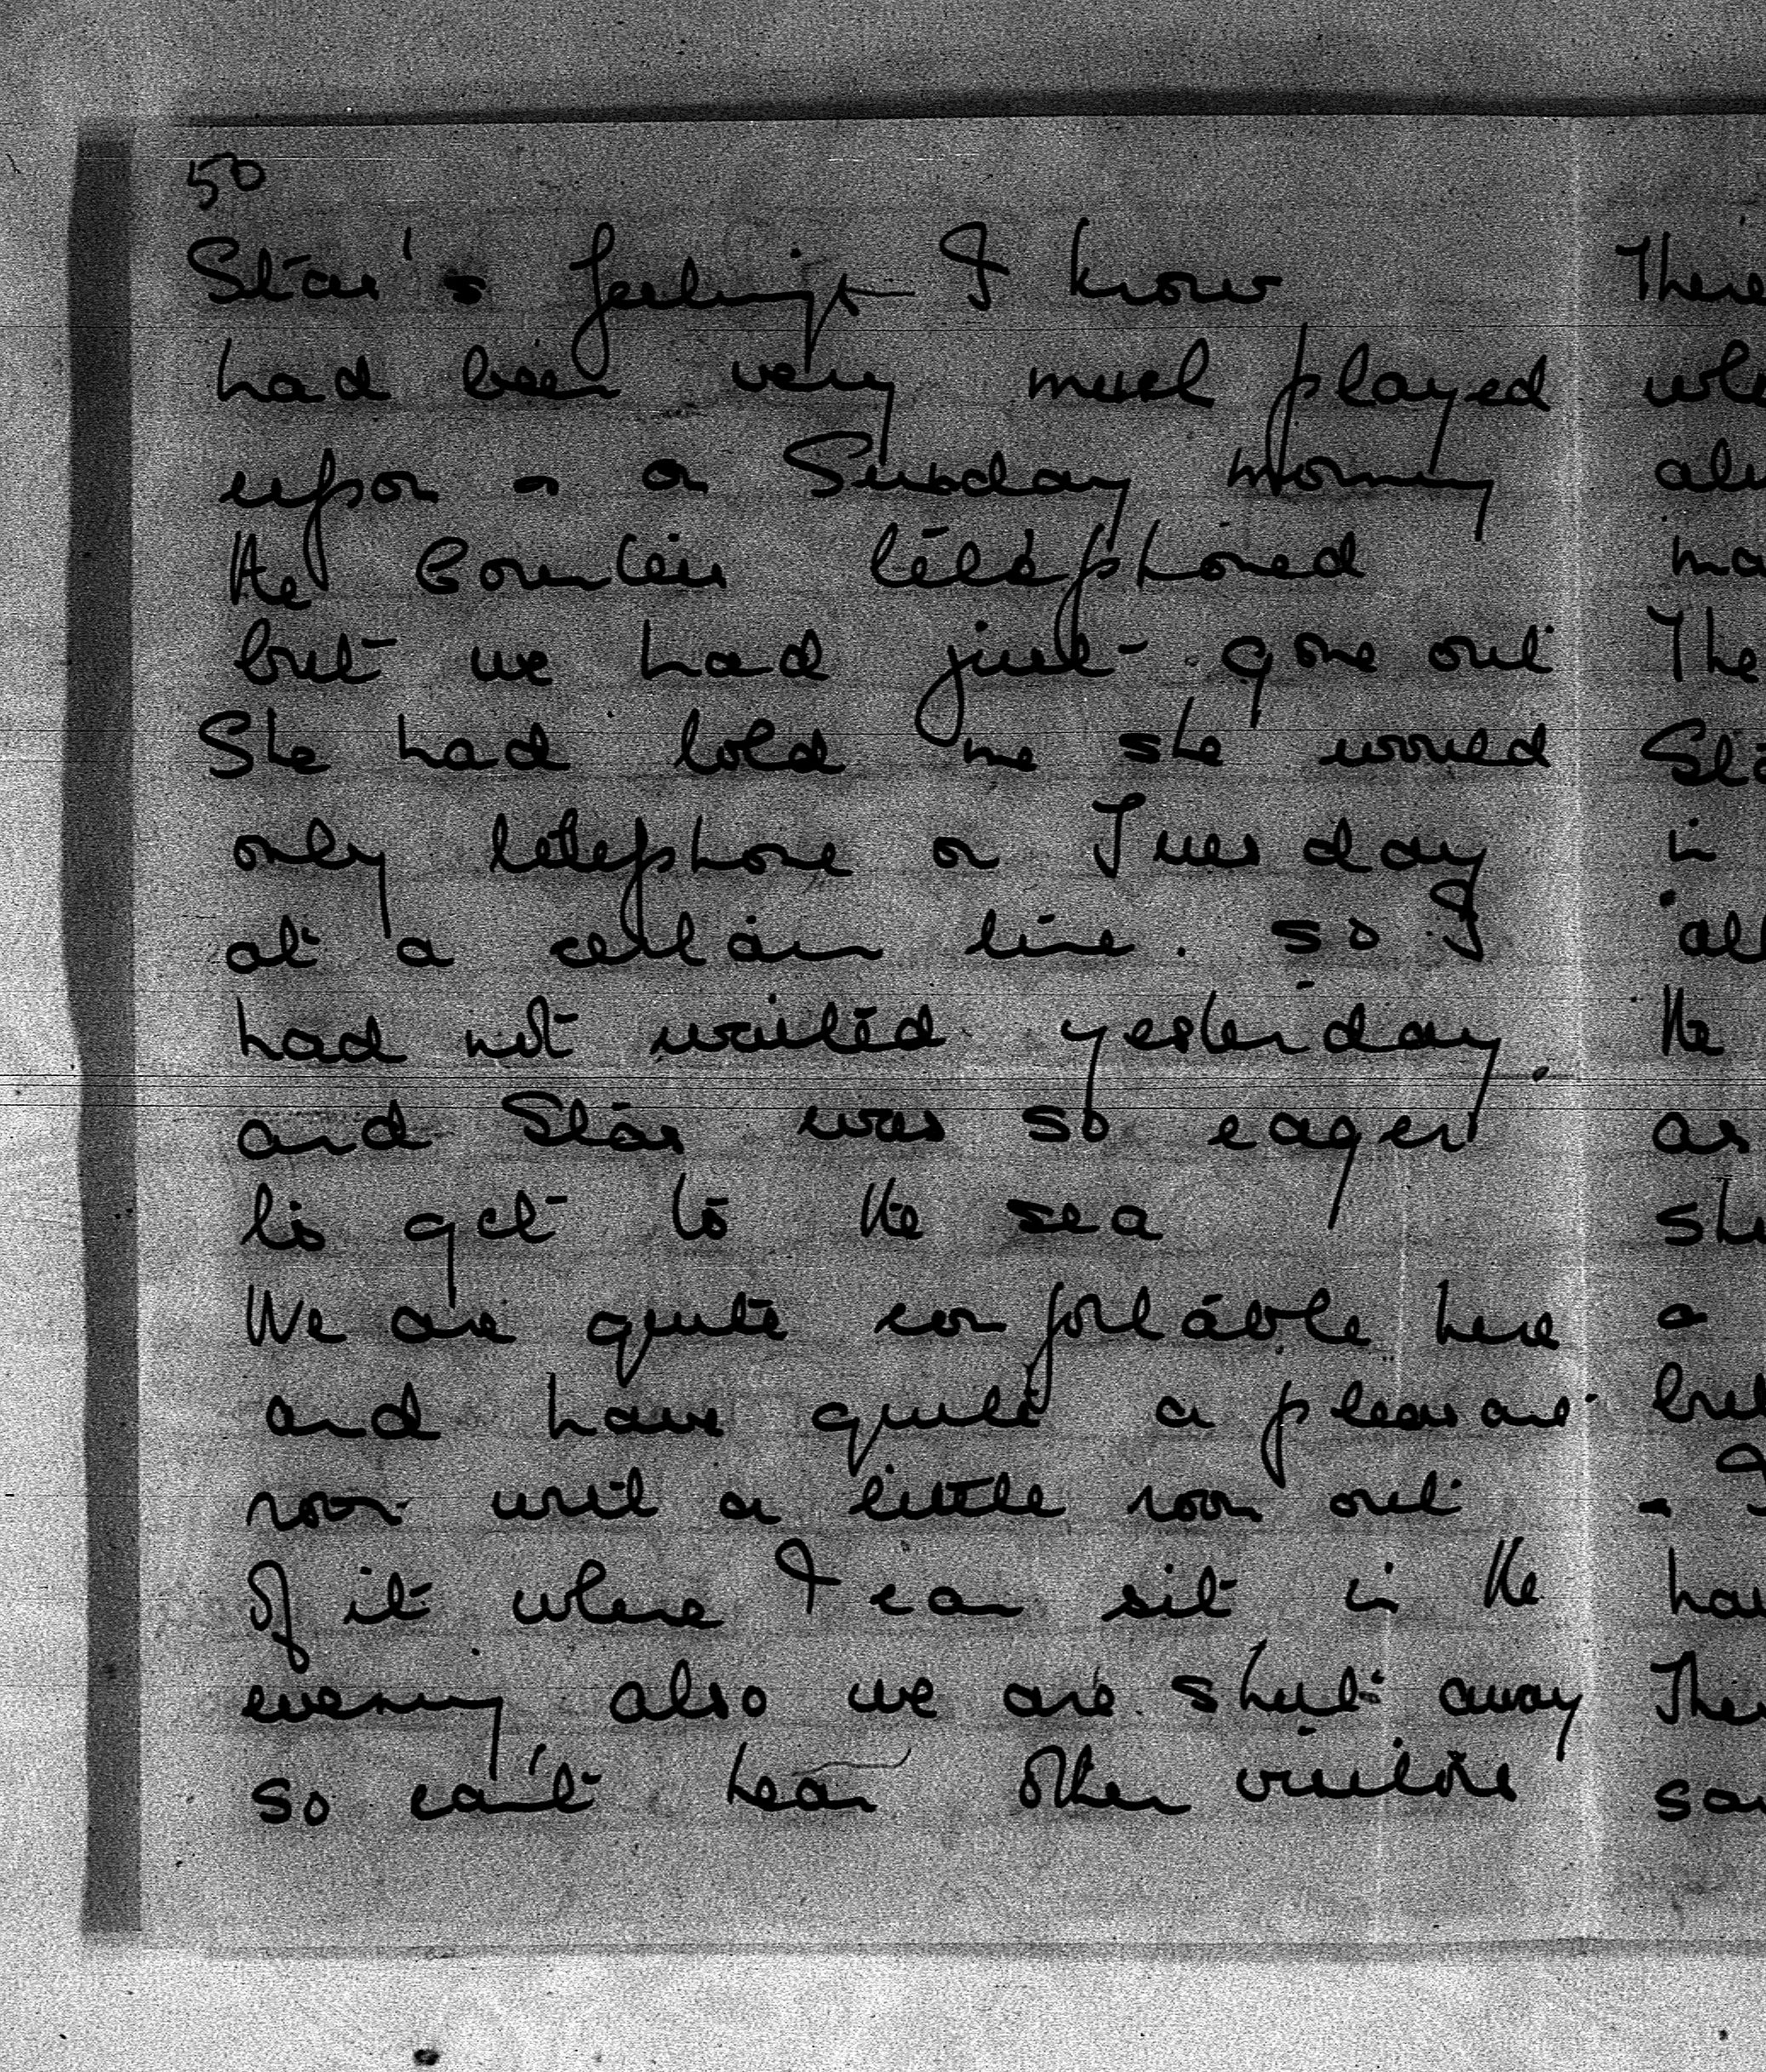 50
Star's feelings I know
had been very much played
upon - on Sunday morning
the Countess telephoned
but we had just gone out
She had told me she would
only telephone on Tuesday
at a certain time. so I
had not waited yesterday.
and Star was so eager
to get to the sea
We are quite comfortable here
and have quite a pleasant
room with a little room out
of it where I can sit in the
evening also we are shut away
so can't hear other visitors